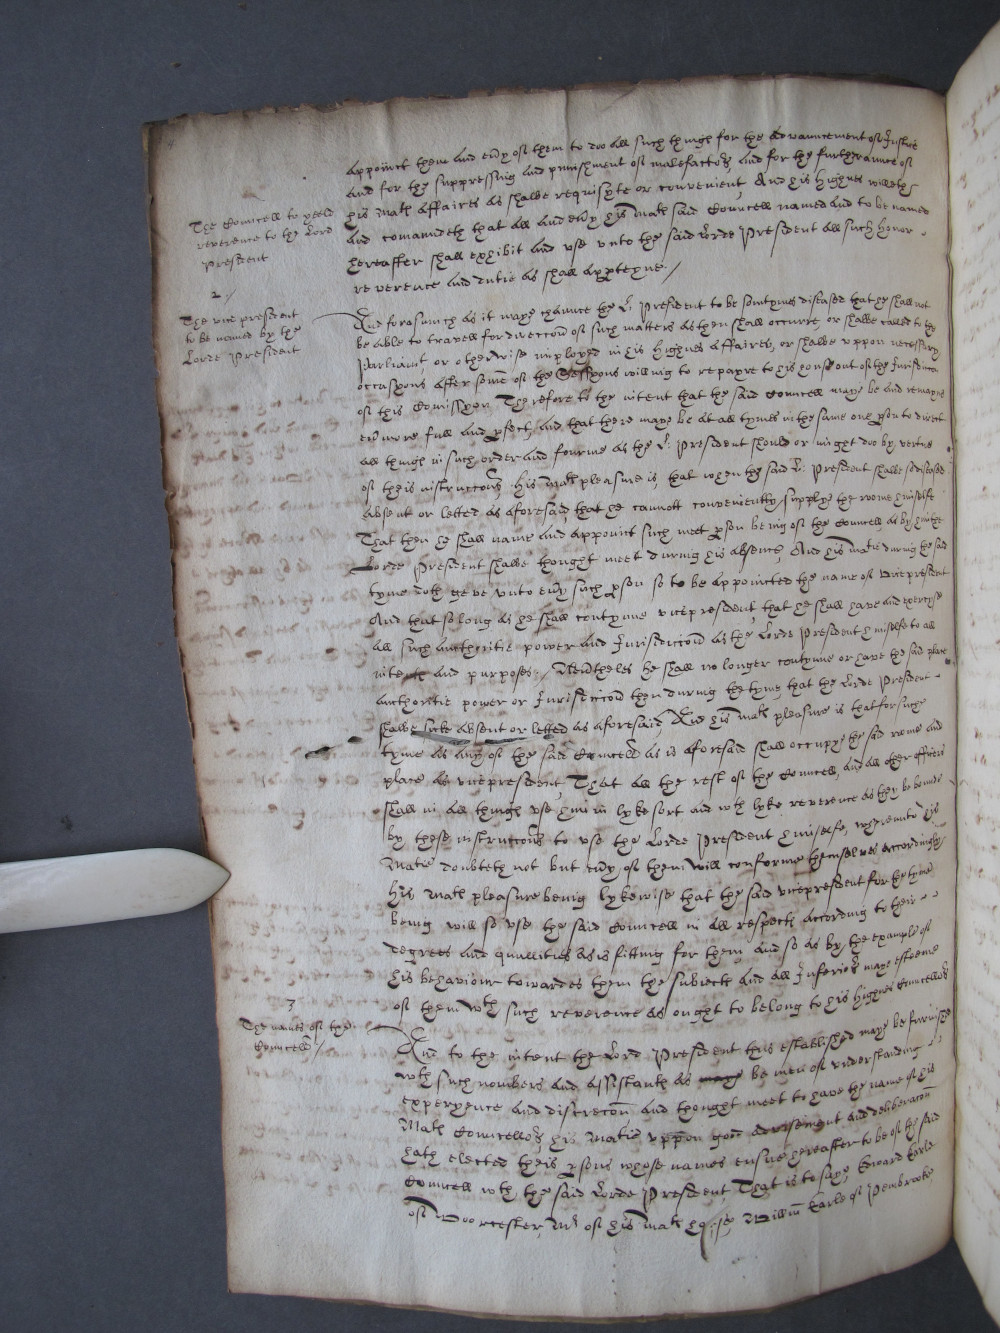 appoint them and ev'y of them to doo all such things for the advauncement of Justice
and for the suppressing and punishment of malefactors, and for the furtheraunce of
his Ma'ts affaires as shalbe requisyte or convenient, And his highnes willeth
The Councell to yeeld
reverence to the Lord
President
and comaundeth that all and ev'y his Ma'ts said Councell named and to be named
hereafter shall exhibit and use unto the said Lorde President all such honor
reverence and dutie as shall apperteyne /
2 /
The vice president
to be named by the
Lorde President
And forasmuch as it maye chaunce the L: President to be somtymes diseased that he shall not
be able to travell for direccon of such matters as then shall occurre, or shalbe called to the
Parliam't, or otherwise imployed in his highnes affaires, or shalbe uppon necessary
occasyons after some of the Sessyons willing to repayre to his house out of the Jurisdiccon
of this Comissyon Therefore to the intent that the said Councell maye be and remayne
ev'more full and p'fect, and that there maye be at all tymes in the same one p'son to direct
all things in such order and fourme as the L: President should or might doo by vertue
of theis instruccons, his Ma'ts pleasure is, that when the said L: President shalbe so diseased
absent or letted as aforesaid, that he cannott conveniently supplye the roome himselfe
That then he shall name and appoint such meet p'son being of the Councell as by him the
Lorde President shalbe thought meet during his absence, And his Ma'tie during the said
tyme doth geve unto ev'y such p'son so to be appointed the name of vicepresident
And that so long as he shall contynue vicepresident, that he shall have and exercyse
all such authoritie power and Jurisdiccon as the Lorde President himselfe to all
intents and purposes, Nevertheles he shall no longer contynue or have the said place
authoritie power or Jurisdiccon then during the tyme that the Lorde President
shalbe sicke absent or letted as aforesaid, And his Ma'ts pleasure is that for such
tyme as any of the said Councell as is aforesaid shall occupye the said roome and
place as vicepresident, That all the rest of the Councell, and all other officers
shall in all things use him in lyke sort and w'th lyke reverence as they be bounde
by these instruccons to use the Lorde President himselfe, whereunto his
Ma'tie doubteth not but ev'y of them will conforme themselves accordingly
his Ma'ts pleasure being lykewise that the said vicepresident for the tyme
being will so use the said Councell in all respects according to their
degrees and quallities as is fitting for them and so as by the example of
his behaviour towardes them the subiects and all Inferiors maye esteeme
of them w'th such reverence as ought to belong to his highnes Councellors
3
The names of the
Councell /
And to the intent the Lord President thus established maye be furnished
w'th such nombers and assistants as maye be men of understanding
experyence and discrecon and thought meet to have the name of his
Ma'ts Councellors his Ma'tie uppon good advisement and deliberacon
hath elected theis p'sons whose names ensue hereafter to be of the said
Councell w'th the said Lorde President, That is to saye, Edward Earle
of Woorcester, M'r of his Ma'ts horse, Willm Earle of Pembrooke